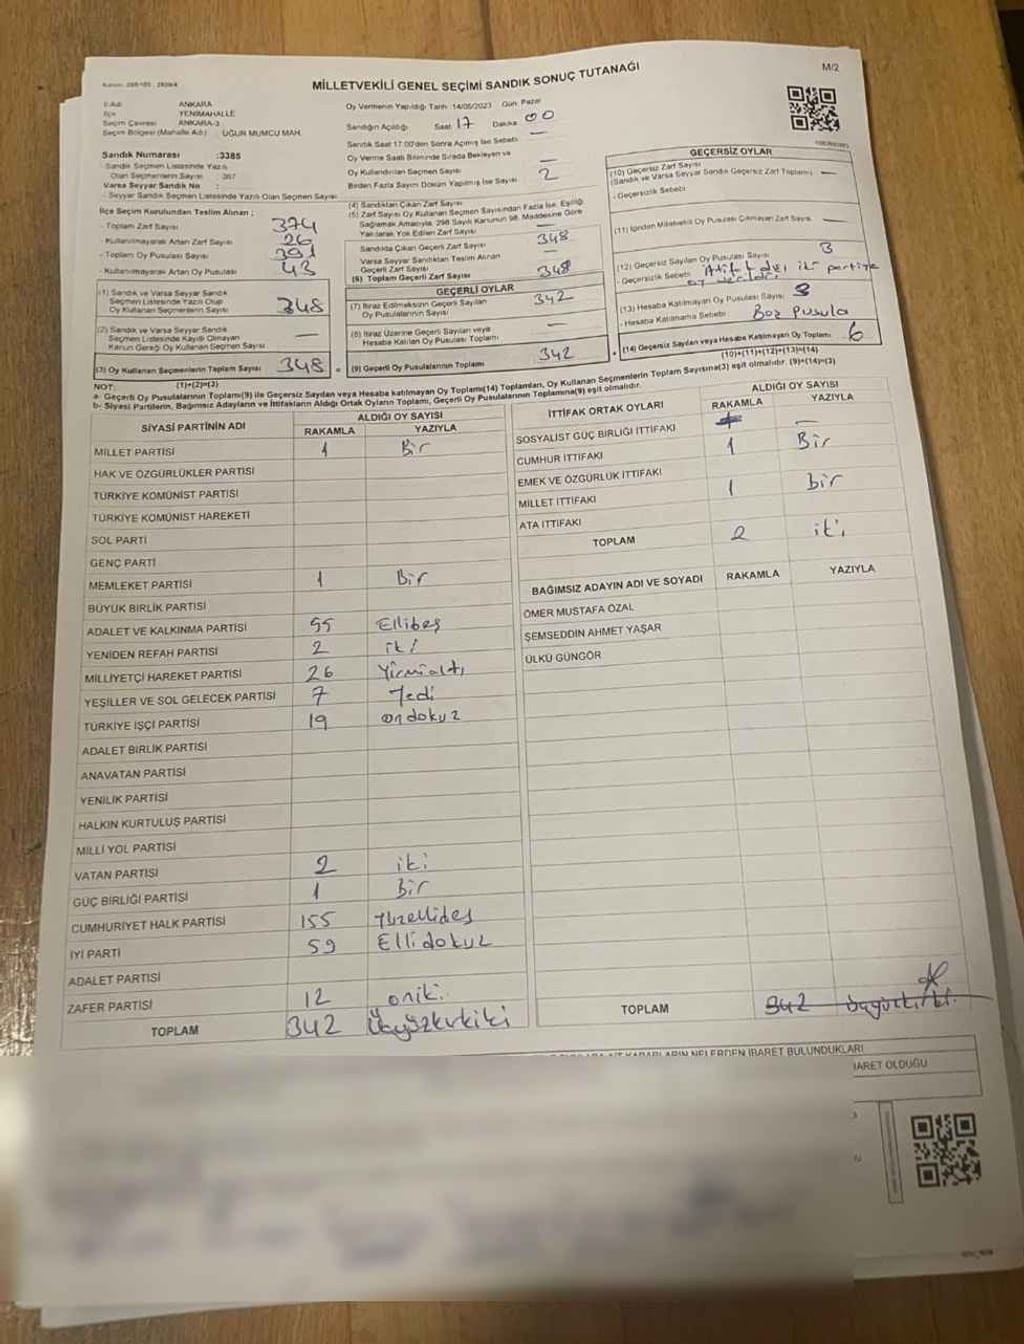 MİLLETVEKİLİ GENEL SEÇİMİ SANDIK SONUÇ TUTANAĞI
M/2
İl Adı : ANKARA
İlçe : YENİMAHALLE
Seçim Çevresi : ANKARA-3
Seçim Bölgesi (Mahalle Adı) : UĞUR MUMCU MAH.
Sandık Numarası :3385
- Sandık Seçmen Listesinde Yazılı
Olan Seçmenlerin Sayısı : 367
Varsa Seyyar Sandık No :
- Seyyar Sandık Seçmen Listesinde Yazılı Olan Seçmen Sayısı
İlçe Seçim Kurulundan Teslim Alınan ;
- Toplam Zarf Sayısı 374
- Kullanılmayarak Artan Zarf Sayısı 26
- Toplam Oy Pusulası Sayısı 391
- Kullanılmayarak Artan Oy Pusulası 43
(1) Sandık ve Varsa Seyyar Sandık
Seçmen Listesinde Yazılı Olup
Oy Kullanan Seçmenlerin Sayısı 348
(2) Sandık ve Varsa Seyyar Sandık
Seçmen Listesinde Kaydı Olmayan
Kanun Gereği Oy Kullanan Seçmen Sayısı —
(3) Oy Kullanan Seçmenlerin Toplam Sayısı 348
(1)+(2)=(3)
Oy Vermenin Yapıldığı Tarih :14/05/2023 Gün Pazar
Sandığın Açıldığı Saat 17 Dakika 00
Sandık Saat 17.00'den Sonra Açılmış İse Sebebi —
Oy Verme Saati Bitiminde Sırada Bekleyen ve
Oy Kullandırılan Seçmen Sayısı —
Birden Fazla Sayım Döküm Yapılmış İse Sayısı 2
(4) Sandıktan Çıkan Zarf Sayısı
(5) Zarf Sayısı Oy Kullanan Seçmen Sayısından Fazla İse, Eşitliği
Sağlamak Amacıyla, 298 Sayılı Kanunun 98. Maddesine Göre
Yakılarak Yok Edilen Zarf Sayısı
Sandıkta Çıkan Geçerli Zarf Sayısı 348
Varsa Seyyar Sandıktan Teslim Alınan
Geçerli Zarf Sayısı —
(6) Toplam Geçerli Zarf Sayısı 348
GEÇERLİ OYLAR
(7) İtiraz Edilmeksizin Geçerli Sayılan
Oy Pusulalarının Sayısı 342
(8) İtiraz Üzerine Geçerli Sayılan veya
Hesaba Katılan Oy Pusulası Toplamı —
(9) Geçerli Oy Pusulalarının Toplamı 342
GEÇERSİZ OYLAR
(10) Geçersiz Zarf Sayısı
(Sandık ve Varsa Seyyar Sandık Geçersiz Zarf Toplamı) —
- Geçersizlik Sebebi
(11) İçinden Milletvekili Oy Pusulası Çıkmayan Zarf Sayısı —
(12) Geçersiz Sayılan Oy Pusulası Sayısı 3
- Geçersizlik Sebebi iki partiye
(13) Hesaba Katılmayan Oy Pusulası Sayısı 3
- Hesaba Katılmama Sebebi : Boş pusula
(14) Geçersiz Sayılan veya Hesaba Katılmayan Oy Toplamı 6
(10)+(11)+(12)+(13)=(14)
NOT:
a- Geçerli Oy Pusulalarının Toplamı(9) ile Geçersiz Sayılan veya Hesaba katılmayan Oy Toplamı(14) Toplamları, Oy Kullanan Seçmenlerin Toplam Sayısına(3) eşit olmalıdır. (9)+(14)=(3)
b- Siyasi Partilerin, Bağımsız Adayların ve İttifakların Aldığı Ortak Oyların Toplamı, Geçerli Oy Pusulalarının Toplamına(9) eşit olmalıdır.
SİYASİ PARTİNİN ADI ALDIĞI OY SAYISI
RAKAMLA YAZIYLA
MİLLET PARTİSİ 1 Bir
HAK VE ÖZGÜRLÜKLER PARTİSİ
TÜRKİYE KOMÜNİST PARTİSİ
TÜRKİYE KOMÜNİST HAREKETİ
SOL PARTİ
GENÇ PARTİ
MEMLEKET PARTİSİ 1 Bir
BÜYÜK BİRLİK PARTİSİ
ADALET VE KALKINMA PARTİSİ 55 Ellibeş
YENİDEN REFAH PARTİSİ 2 iki
MİLLİYETÇİ HAREKET PARTİSİ 26 Yirmialtı
YEŞİLLER VE SOL GELECEK PARTİSİ 7 Yedi
TÜRKİYE İŞÇİ PARTİSİ 19 ondokuz
ADALET BİRLİK PARTİSİ
ANAVATAN PARTİSİ
YENİLİK PARTİSİ
HALKIN KURTULUŞ PARTİSİ
MİLLİ YOL PARTİSİ
VATAN PARTİSİ 2 iki
GÜÇ BİRLİĞİ PARTİSİ 1 Bir
CUMHURİYET HALK PARTİSİ 155 Yüzellibeş
İYİ PARTİ 59 Ellidokuz
ADALET PARTİSİ
ZAFER PARTİSİ 12 oniki.
TOPLAM 342 Üçyüzkırkiki
İTTİFAK ORTAK OYLARI ALDIĞI OY SAYISI
RAKAMLA YAZIYLA
SOSYALİST GÜÇ BİRLİĞİ İTTİFAKI —
CUMHUR İTTİFAKI 1 Bir
EMEK VE ÖZGÜRLÜK İTTİFAKI
MİLLET İTTİFAKI 1 bir
ATA İTTİFAKI
TOPLAM 2 iki
BAĞIMSIZ ADAYIN ADI VE SOYADI RAKAMLA YAZIYLA
ÖMER MUSTAFA ÖZAL
ŞEMSEDDİN AHMET YAŞAR
ÜLKÜ GÜNGÖR
TOPLAM 342 üçyüzkırkiki.
NELERDEN İBARET BULUNDUKLARI
İBARET OLDUĞU